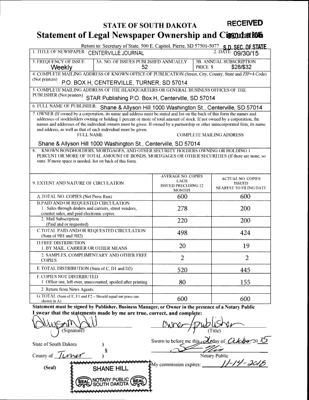 RECEIVED
STATE OF SOUTH DAKOTA
Statement of Legal Newspaper Ownership and Circulation
Return to: Secretary of State, 500 E. Capitol, Pierre, SD 57501-5077
S.D. SEC. OF STATE
1. TITLE OF NEWSPAPER CENTERVILLE JOURNAL
2. DATE 09/30/15
3. FREQUENCY OF ISSUE
Weekly
3A. NO. OF ISSUES PUBLISHED ANNUALLY
52
3B. ANNUAL SUBSCRIPTION
PRICE $ $28/$32
4. COMPLETE MAILING ADDRESS OF KNOWN OFFICE OF PUBLICATION (Street, City, County, State and ZIP+4 Code)
(Not printers)
P.O. BOX H, CENTERVILLE, TURNER, SD 57014
5. COMPLETE MAILING ADDRESS OF THE HEADQUARTERS OR GENERAL BUSINESS OFFICES OF THE
PUBLISHER (Not printers)
STAR Publishing P.O. Box H, Centerville, SD 57014
6. FULL NAME OF PUBLISHER: Shane & Allyson Hill 1000 Washington St., Centerville, SD 57014
7. OWNER (If owned by a corporation, its name and address must be stated and also on the back of this form the names and
addresses of stockholders owning or holding 1 percent or more of total amount of stock. If not owned by a corporation, the
names and addresses of the individual owners must be given. If owned by a partnership or other unincorporated firm, its name
and address, as well as that of each individual must be given.
FULL NAME
COMPLETE MAILING ADDRESS
Shane & Allyson Hill 1000 Washington St., Centerville, SD 57014
8. KNOWN BONDHOLDERS, MORTGAGES, AND OTHER SECURITY HOLDERS OWNING OR HOLDING 1
PERCENT OR MORE OF TOTAL AMOUNT OF BONDS, MORTGAGES OR OTHER SECURITIES (If there are none, so
state. If more space is needed, list on back of this form.
9. EXTENT AND NATURE OF CIRCULATION
AVERAGE NO. COPIES
EACH
ISSUED PRECEDING 12
MONTHS
ACTUAL NO. COPIES
ISSUED
NEAREST TO FILING DATE
A. TOTAL NO. COPIES (Net Press Run) 600 600
B. PAID AND/OR REQUESTED CIRCULATION
1. Sales through dealers and carriers, street vendors,
counter sales, and paid electronic copies. 278 200
2. Mail Subscription
(Paid and or requested) 220 200
C. TOTAL PAID AND/OR REQUESTED CIRCULATION
(Sum of 9B1 and 9B2) 498 424
D. FREE DISTRIBUTION
1. BY MAIL, CARRIER OR OTHER MEANS 20 19
2. SAMPLES, COMPLIMENTARY AND OTHER FREE
COPIES 2 2
E. TOTAL DISTRIBUTION (Sum of C, D1 and D2) 520 445
F. COPIES NOT DISTRIBUTED
1. Office use, left over, unaccounted, spoiled after printing 80 155
2. Return from News Agents
G. TOTAL (Sum of E, F1 and F2 - Should equal net press run
shown in A) 600 600
Statement must be signed by Publisher, Business Manager, or Owner in the presence of a Notary Public
I swear that the statements made by me are true, correct, and complete:
Allyson Hill
(Signature)
Owner/publisher
(Title)
State of South Dakota )
County of Turner )
Sworn to before me this day of October 20 15
Notary Public
(Seal)
SHANE HILL
NOTARY PUBLIC
SOUTH DAKOTA
SEAL
SEAL
My commission expires: 11-14-2016